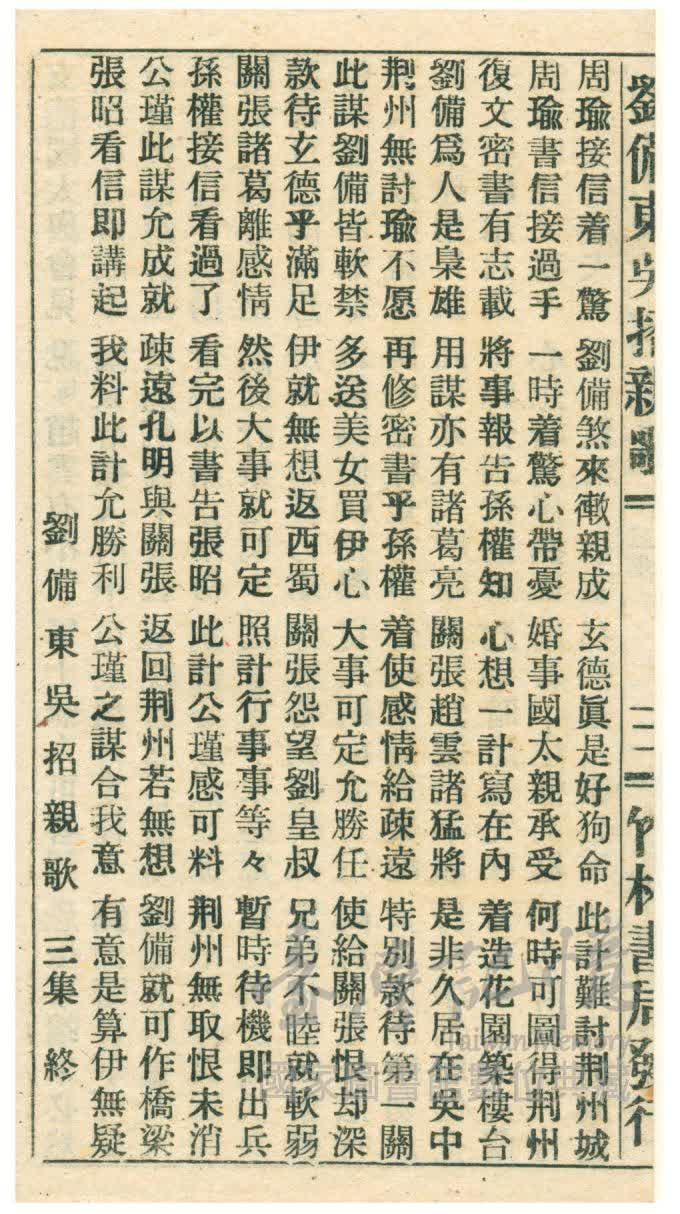 劉備東吳招親歌 三 竹林書局發行
周瑜接信着一驚 劉備煞來𢕑親成 玄德眞是好狗命 此計難討荆州城
周瑜書信接過手 一時着驚心帶憂 婚事國太親承受 何時可圖得荆州
復文密書有志載 將事報告孫權知 心想一計寫在內 着造花園築樓台
劉備爲人是梟雄 用謀亦有諸葛亮 關張趙雲諸猛將 是非久居在吳中
荆州無討瑜不愿 再修密書乎孫權 着使感情給疎遠 特別款待第一關
此謀劉備皆軟禁 多送美女買伊心 大事可定允勝任 使給關張恨却深
款待玄德乎滿足 伊就無想返西蜀 關張怨望劉皇叔 兄弟不睦就軟弱
關張諸葛離感情 然後大事就可定 照計行事事等々 暫時待機即出兵
孫權接信看過了 看完以書告張昭 此計公瑾感可料 荆州無取恨未消
公瑾此謀允成就 疎遠孔明與關張 返回荆州若無想 劉備就可作橋梁
張昭看信即講起 我料此計允勝利 公瑾之謀合我意 有意是算伊無疑
劉備東吳招親歌 三集 終
臺灣記憶
Taiwan Memory
國家圖書館數位典藏